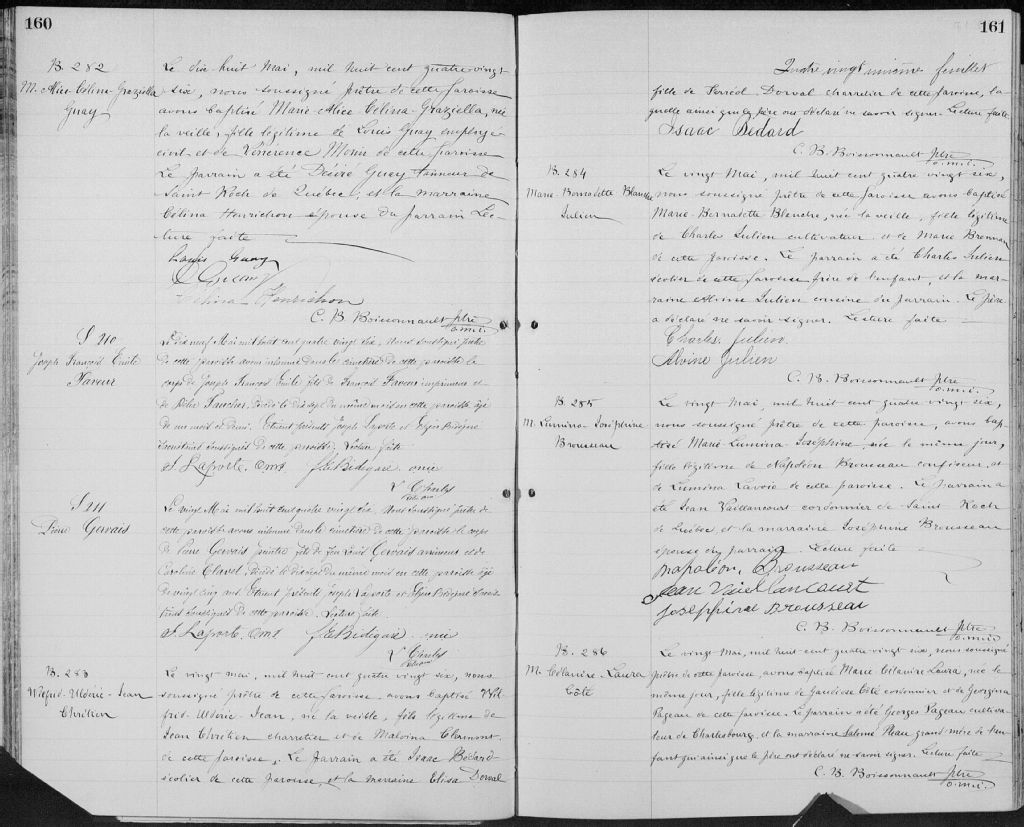 160
B. 282
M. Alice-Célina-Graziella
Guay
Le dix huit Mai, mil huit cent quatre vingt
six, nous soussigné prêtre de cette paroisse
avons baptisé Marie-Alice-Célina-Graziella, née
la veille, fille légitime de Louis Guay employé
civil et de Vénérence Morin de cette paroisse
Le parrain a été Désiré Guay tanneur de
Saint Roch de Québec, et la marraine
Célina Henrichon épouse du parrain Lec-
ture faite
Louis Guay
Célina Henrichon
C. B. Boissonnault ptre
o.m.i.
S 210
Joseph François Emile
Faveur
Le dix neuf Mai mil huit cent quatre vingt six, Nous soussigné prêtre
de cette paroisse avons inhumé dans le cimetière de cette paroisse le
corps de Joseph François Emile fils de François Faveur imprimeur et
de Faucher, décédé le dix sept du même mois en cette paroisse âgé
de un mois et demi. Etaient présents Joseph Laporte et Elzéar Bédigaré
soussignés de cette paroisse. Lecture faite
J. Laporte, omi f. E. Bédigaré omi
S 211
Pierre Gervais
Le vingt Mai mil huit cent quatre vingt six, Nous soussigné prêtre de
cette paroisse avons inhumé dans le cimetière de cette paroisse le corps
de Pierre Gervais peintre fils de feu Louis Gervais et de
Caroline Clavel, décédé le dix sept du même mois en cette paroisse âgé
de vingt cinq ans Etaient présents Joseph Laporte et Elzéar Bédigaré
soussignés de cette paroisse. Lecture faite
J. Laporte, omi f. E. Bédigaré omi
B. 283
Wilfrid-Uldéric-Jean
Chrétien
Le vingt mai, mil huit cent quatre vingt six, nous
soussigné prêtre de cette paroisse, avons baptisé Wil
frid-Uldéric-Jean, né la veille, fils légitime de
Jean Chrétien charretier et de Malvina Clermont
de cette paroisse. Le parrain a été Isaac Bédard
écolier de cette paroisse, et la marraine Elisa Dorval
161
Quatre vingt unième feuillet
fille de Ferréol Dorval charretier de cette paroisse, la
quelle ainsi que le père ont déclaré ne savoir signer. Lecture faite.
Isaac Bedard
C. B. Boissonnault ptre
o.m.i.
B. 284
Marie-Bernadette Blanche
Julien
Le vingt Mai, mil huit cent quatre vingt six,
nous soussigné prêtre de cette paroisse avons baptisé
Marie-Bernadette Blanche, née la veille, fille légitime
de Charles Julien cultivateur et de Marie Brennan
de cette paroisse. Le parrain a été Charles Julien
écolier de cette paroisse frère de l'enfant, et la mar-
raine Alvine Julien cousine du parrain. Le père
a déclaré ne savoir signer. Lecture faite
Charles Julien
Alvine Julien
C. B. Boissonnault ptre
o.m.i.
B. 285
M. Lumina Joséphine
Brousseau
Le vingt Mai, mil huit cent quatre vingt six,
nous soussigné prêtre de cette paroisse, avons bap-
tisé Marie-Lumina Joséphine née le même jour,
fille légitime de Napoléon Brousseau confiseur et
de Lumina Lavoie de cette paroisse. Le parrain a
été Jean Vaillancourt cordonnier de Saint Roch
de Québec et la marraine Joséphine Brousseau
épouse du parrain. Lecture faite
Napoléon Brousseau
Jean Vaiellancourt
Josephine Brousseau
C. B. Boissonnault ptre
o.m.i.
B. 286
M. Célanire-Laura
Côté
Le vingt Mai, mil huit cent quatre vingt six, nous soussigné
prêtre de cette paroisse, avons baptisé Marie Célanire Laura, née le
même jour, fille légitime de Gaudiose Côté cordonnier et de Georgina
Pageau de cette paroisse. Le parrain a été Georges Pageau cultiva-
teur de Charlesbourg, et la marraine Salomé Pleau grand-mère de l'en-
fant qui ainsi que le père ont déclaré ne savoir signer. Lecture faite
C. B. Boissonnault ptre
o.m.i.